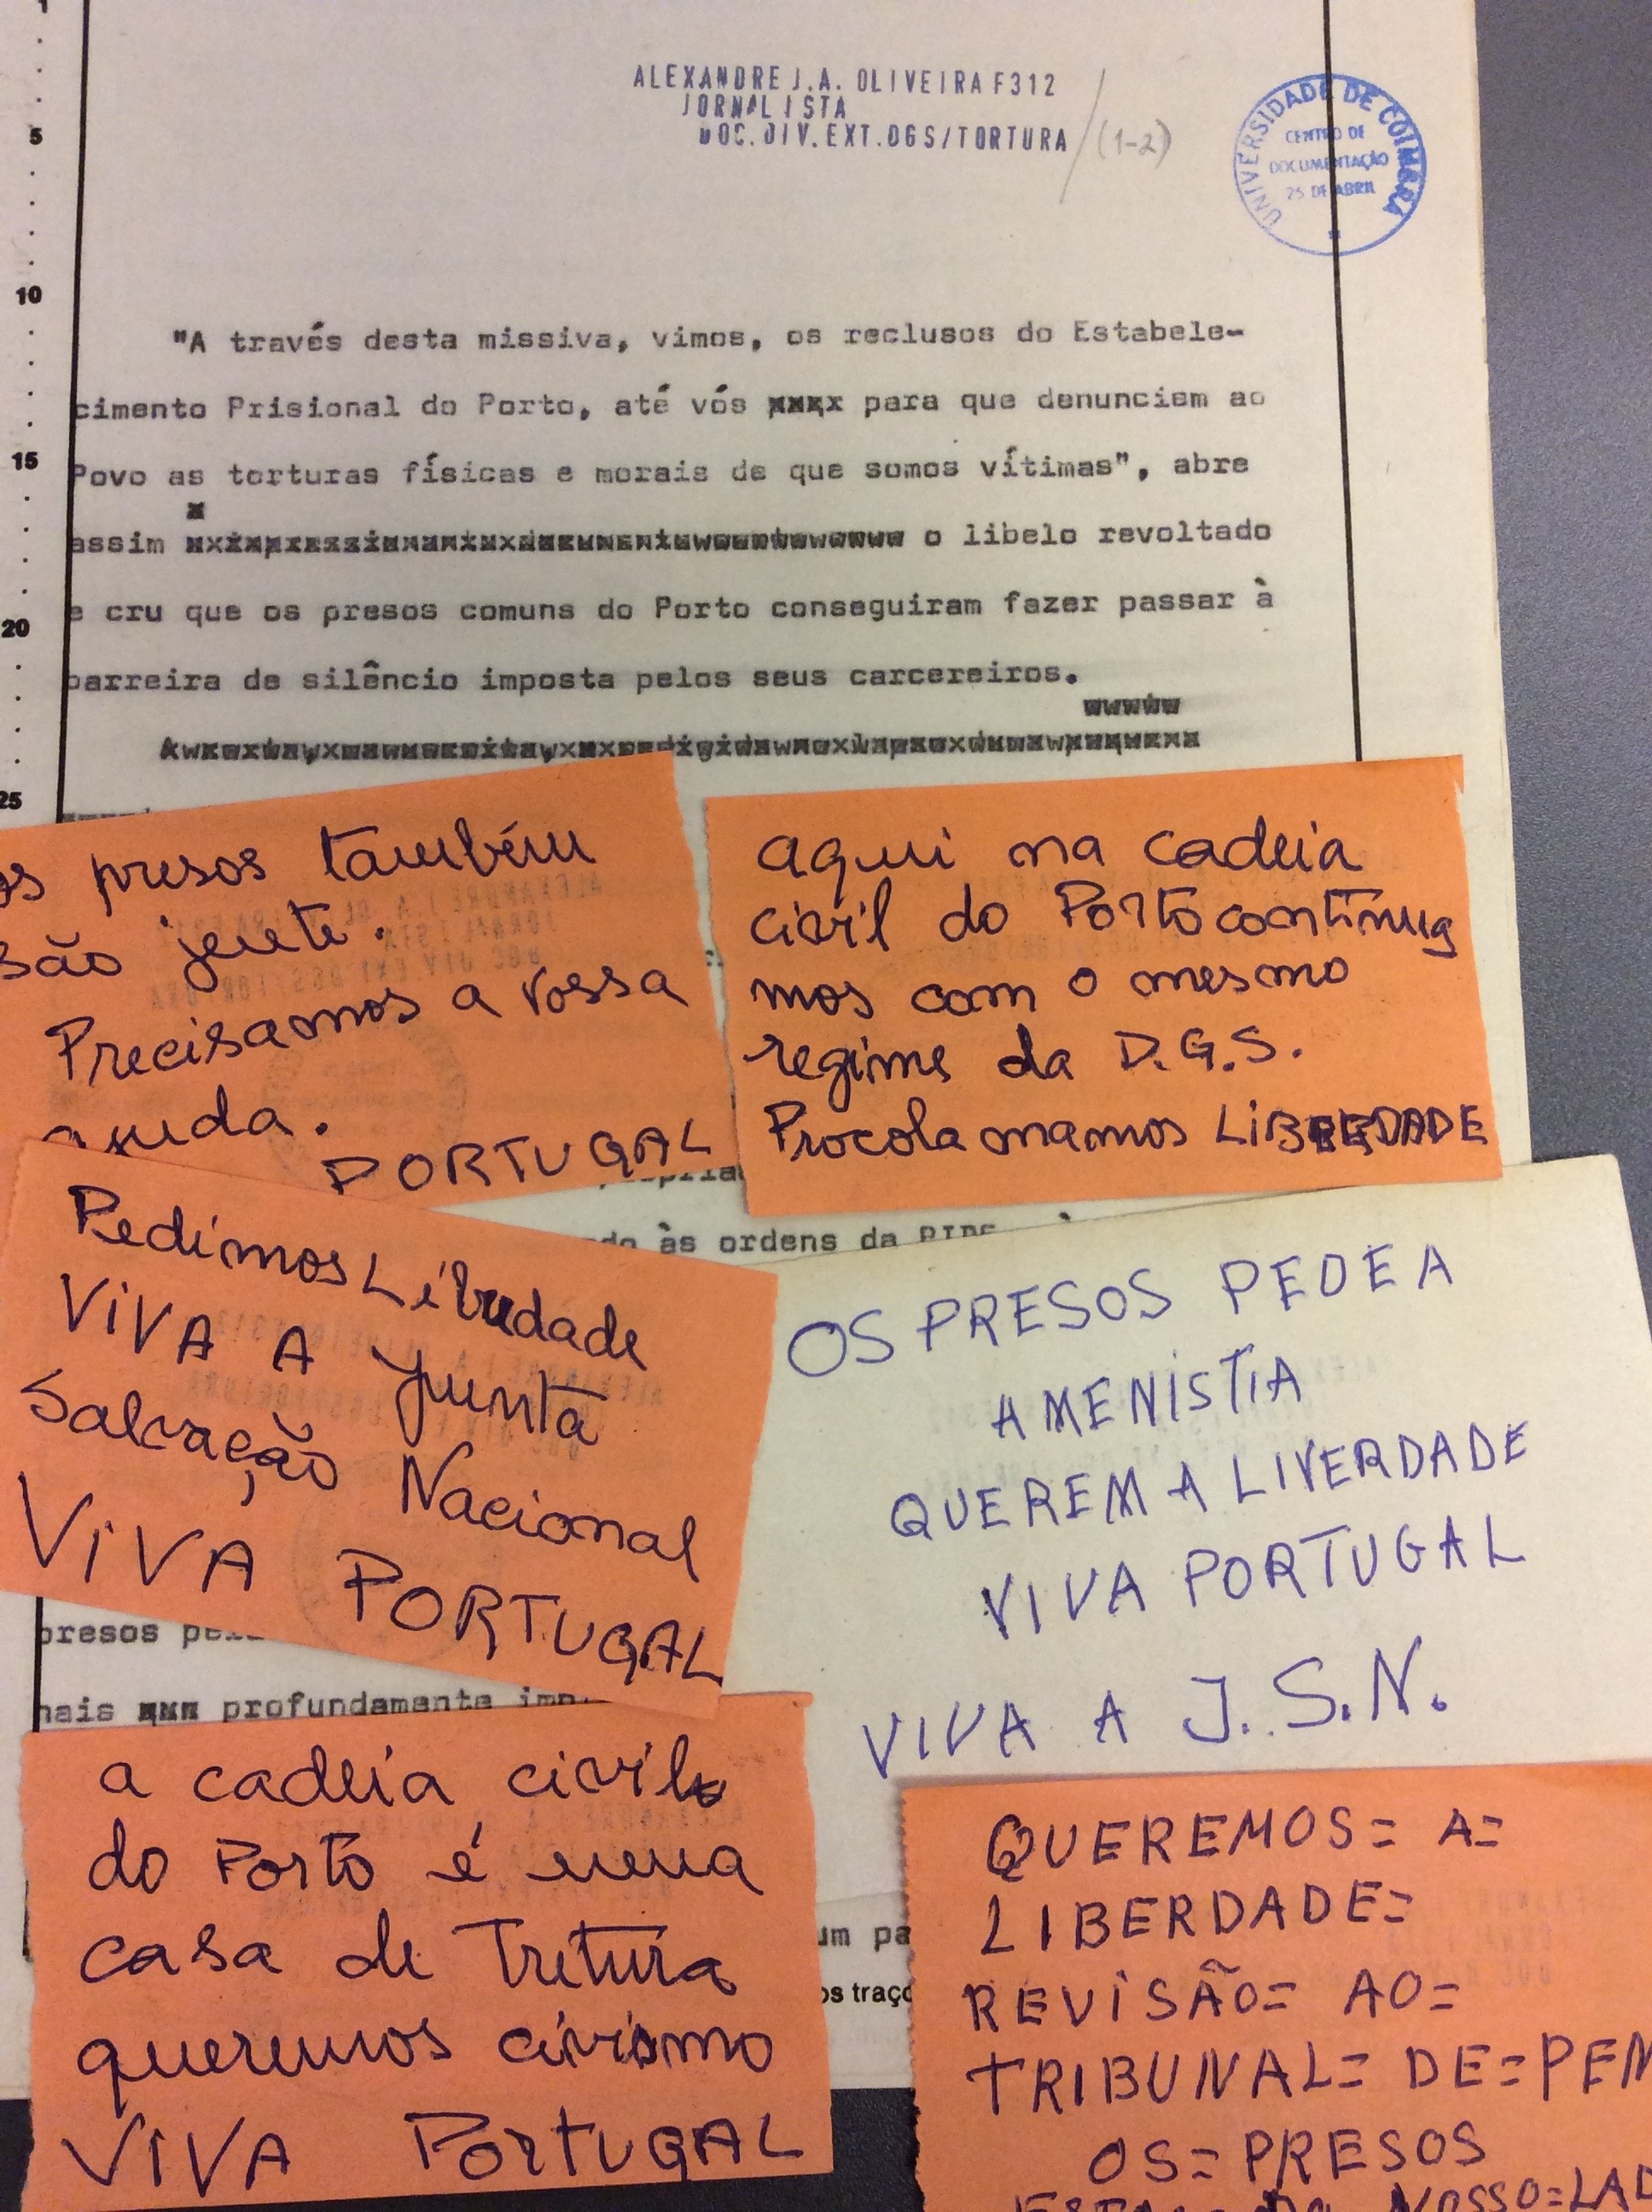 1
5
10
15
20
25
ALEXANDRE J.A. OLIVEIRA F312
JORNALISTA
DOC.DIV.EXT.DGS/TORTURA (1-2)
UNIVERSIDADE DE COIMBRA
CENTRO DE
DOCUMENTAÇÃO
25 DE ABRIL
"A través desta missiva, vimos, os reclusos do Estabele-
cimento Prisional do Porto, até vós xxxx para que denunciem ao
Povo as torturas físicas e morais de que somos vítimas", abre
assim o libelo revoltado
e cru que os presos comuns do Porto conseguiram fazer passar à
barreira de silêncio imposta pelos seus carcereiros.
os presos também
são jente.
Precisamos a vossa
ajuda.
PORTUGAL
aqui na cadeia
civil do Porto continua
mos com o mesmo
regime da D.G.S.
Procolamamos LiBERDADE
às ordens da PIDE
Pedimos Liberdade
ViVA A Junta
Salvação Nacional
ViVA PORTUGAL
OS PRESOS PEDE A
AMENISTIA
QUEREM A LIVERDADE
VIVA PORTUGAL
VIVA A J.S.N.
presos
mais profundamente
a cadeia civil
do Porto é uma
casa de Tretura
queremos civismo
ViVA PORTUGAL
um pa
os traço
QUEREMOS= A=
LIBERDADE=
REVISÃO= AO=
TRIBUNAL= DE=PEN
OS= PRESOS
NOSSO=LAD